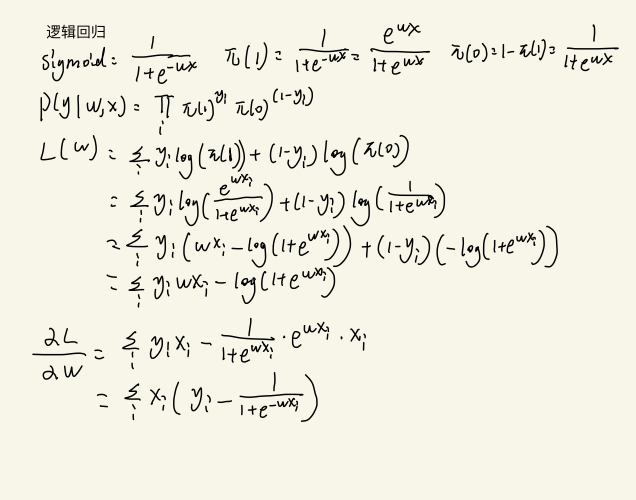 逻辑回归
sigmoid = 1/(1+e^{-wx})  π(1) = 1/(1+e^{-wx}) = e^{wx}/(1+e^{wx})  π(0) = 1-π(1) = 1/(1+e^{wx})
P(y|w,x) = ∏_i π(1)^{y_i} π(0)^{(1-y_i)}
L(w) = Σ_i y_i log(π(1)) + (1-y_i) log(π(0))
= Σ_i y_i log(e^{wx_i}/(1+e^{wx_i})) + (1-y_i) log(1/(1+e^{wx_i}))
= Σ_i y_i (wx_i - log(1+e^{wx_i})) + (1-y_i)(-log(1+e^{wx_i}))
= Σ_i y_i wx_i - log(1+e^{wx_i})
∂L/∂w = Σ_i y_i x_i - 1/(1+e^{wx_i}) · e^{wx_i} · x_i
= Σ_i x_i (y_i - 1/(1+e^{-wx_i}))